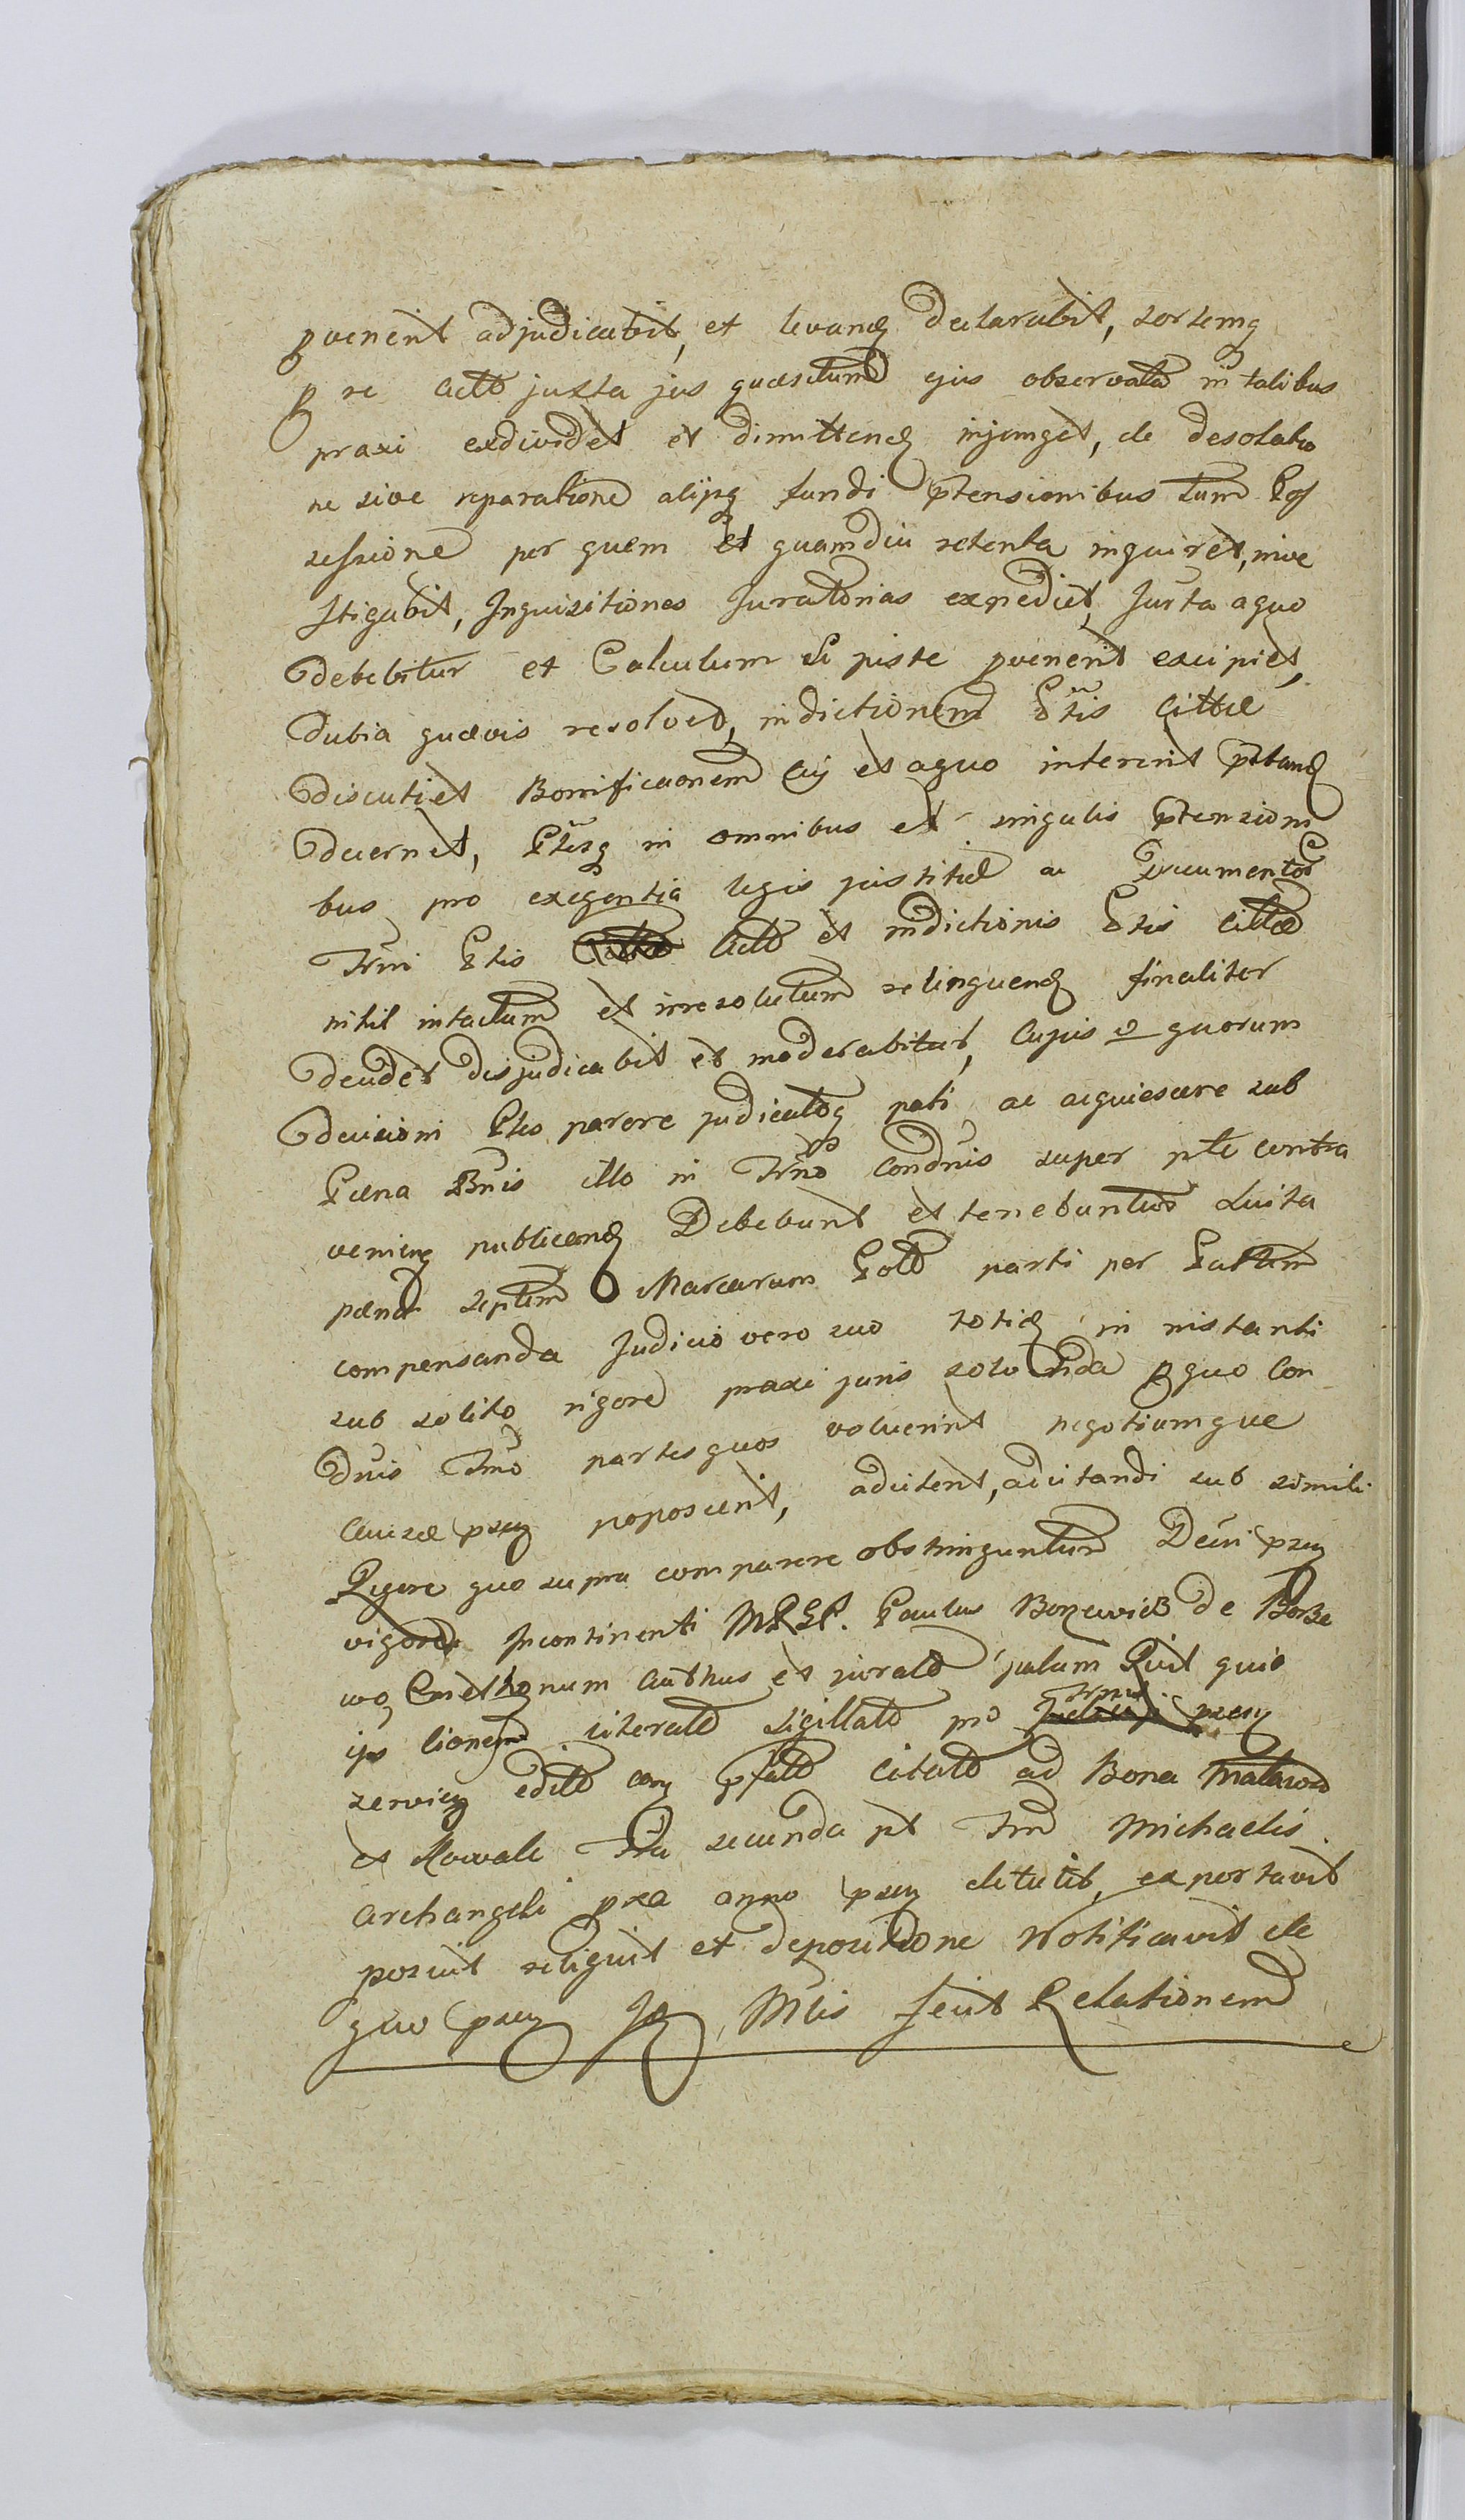 pvenerit adjudicabit, et levand declarabit, sortemq
p re actt juxta jus quaesitum ejus observata in talibus
praxi exdividet et dimittend injunget, de desolatio
ne sive reparatione alijsq fundi ptensionibus tum Pos
sessione per quem et quamdiu retenta inquiret, inve
stigabit, Inquisitiones Juratorias expediet, Jurta aquo
debebitur et Calculum si juste pvenerit excipiet,
dubia quaevis resolvet, indictionem Ptis cittae
discutiet Bonificaonem Cuj et aquo intererit pstand
decernet, Ptesq in omnibus et singulis ptensioni
bus pro exigentia legis justitiae ac Documentor
Trni Ptis actt et indictionis Ptis cittae
nihil intactum et irresolutum relinquend finaliter
decidet disjudicabit et moderabitur, Cujus et quorum
decisioni Ptes parere judicatoq pati, ac acquiescere sub
Paena Bnis illo in Trno Condnis super pte contra
venien publicand Debebunt et tenebuntur Luita
paena septem Marcarum Poll parti per Partem
compensanda Judicio vero suo totid in instanti
sub solito rigore praxi juris solvenda p quo Con
dnis Trno partes quos voluerint negotiumque
causae psens poposcerit, adcitent, adcitandi sub simili
Rigore quo supra comparere obstringuntur Decri psen
vigore Incontinenti MRGP. Paulus Borzewicz de Borze
wo Emethonum authus et jurat palam Rcit quia
ips lionem literat sigillat pro Trno psens
serviens edit con pfatt Citatt ad Bona
et Kowale Fria secunda pt Frm Michaelis
Archangeli pxa anno psen detulit, exportavit
posuit reliquit et depositione Notificavit de
quo psens Mlis fecit Relationem